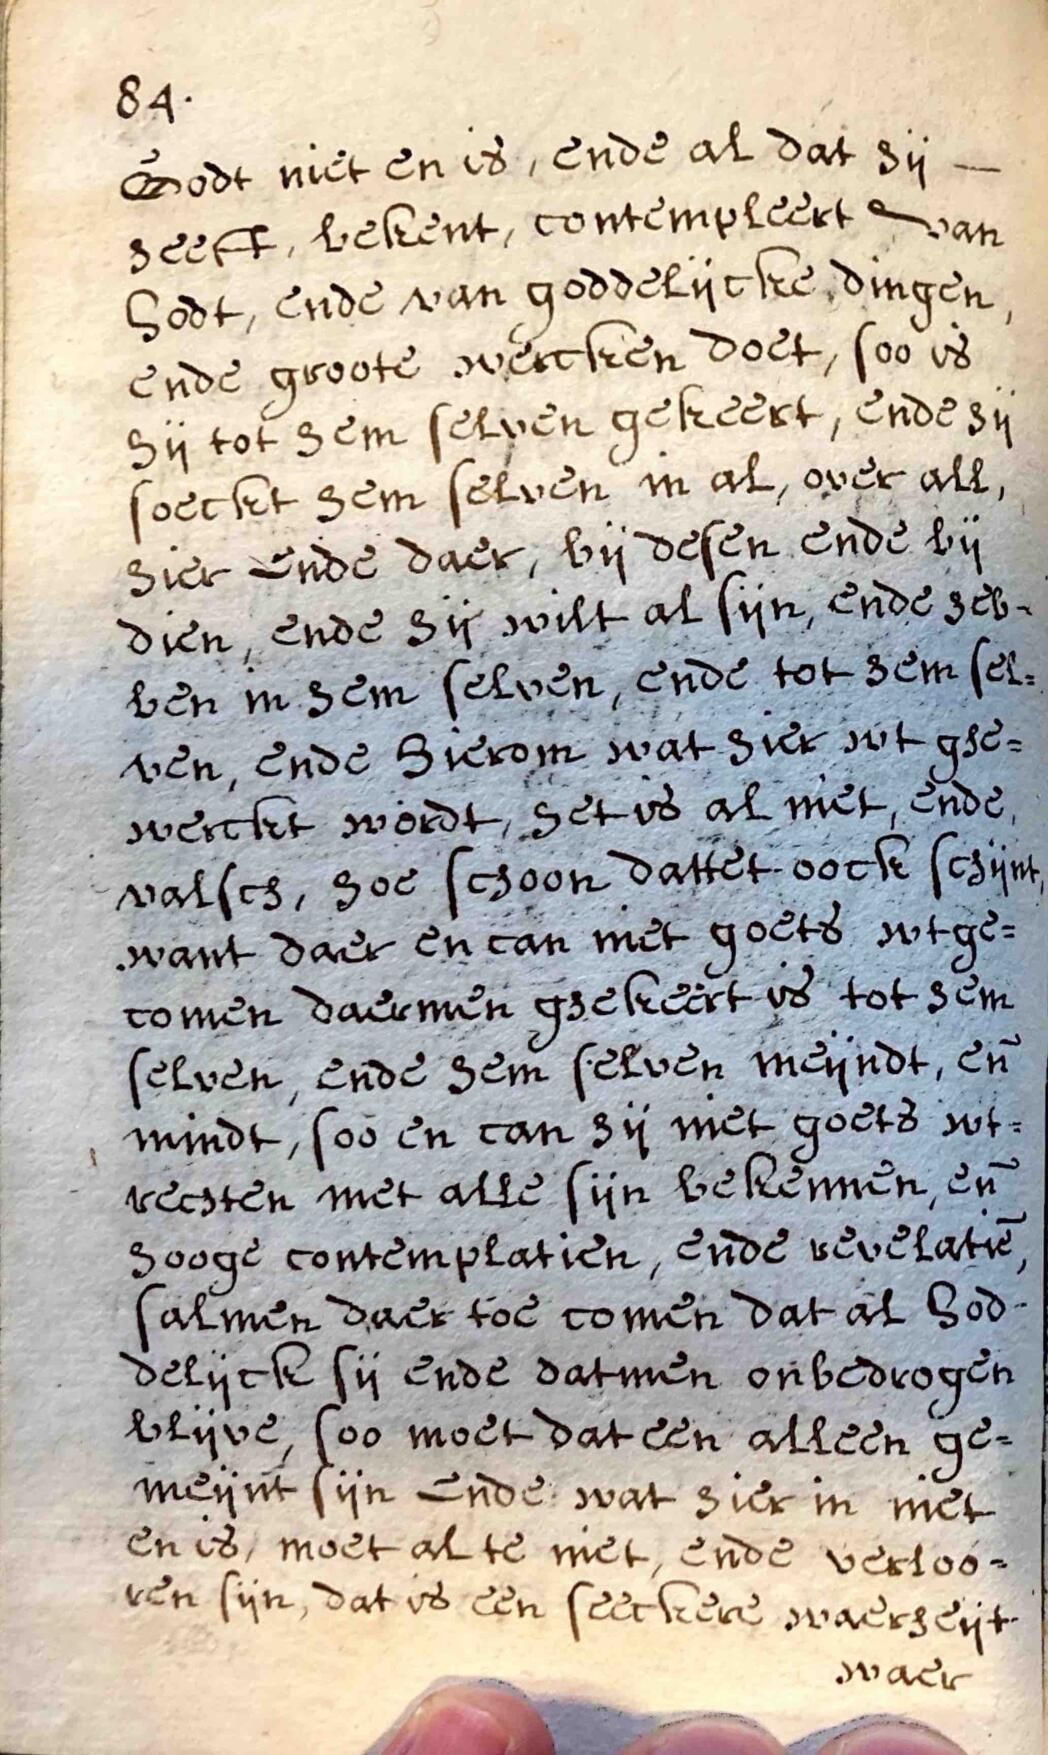 84.
Godt niet en is, ende al dat hij —
heeft, bekent, contempleert van
Godt, ende van goddelijcke dingen,
ende groote wercken doet, soo is
hij tot hem selven gekeert, ende hij
soeckt hem selven in al, over all,
hier ende daer, bij desen ende bij
dien, ende hij wilt al sijn, ende heb-
ben in hem selven, ende tot hem sel=
ven, ende hierom wat hier wt ghe=
werckt wordt, het is al niet, ende
valsch, hoe schoon dattet oock schijnt,
want daer en can niet goets wtge=
comen daermen ghekeert is tot hem
selven, ende hem selven meijndt, en̄
mindt, soo en can hij niet goets wt=
rechten met alle sijn bekennen, en̄
hooge contemplatien, ende revelatiē,
salmen daer toe comen dat al God-
delijck sij ende datmen onbedrogen
blijve, soo moet dat een alleen ge=
meijnt sijn ende wat hier in niet
en is, moet al te niet, ende verloo=
ren sijn, dat is een seeckere waerheijt
waer